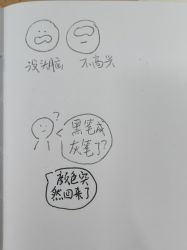 没头脑 不高兴
?
黑笔成
灰笔了?
颜色突
然回来了